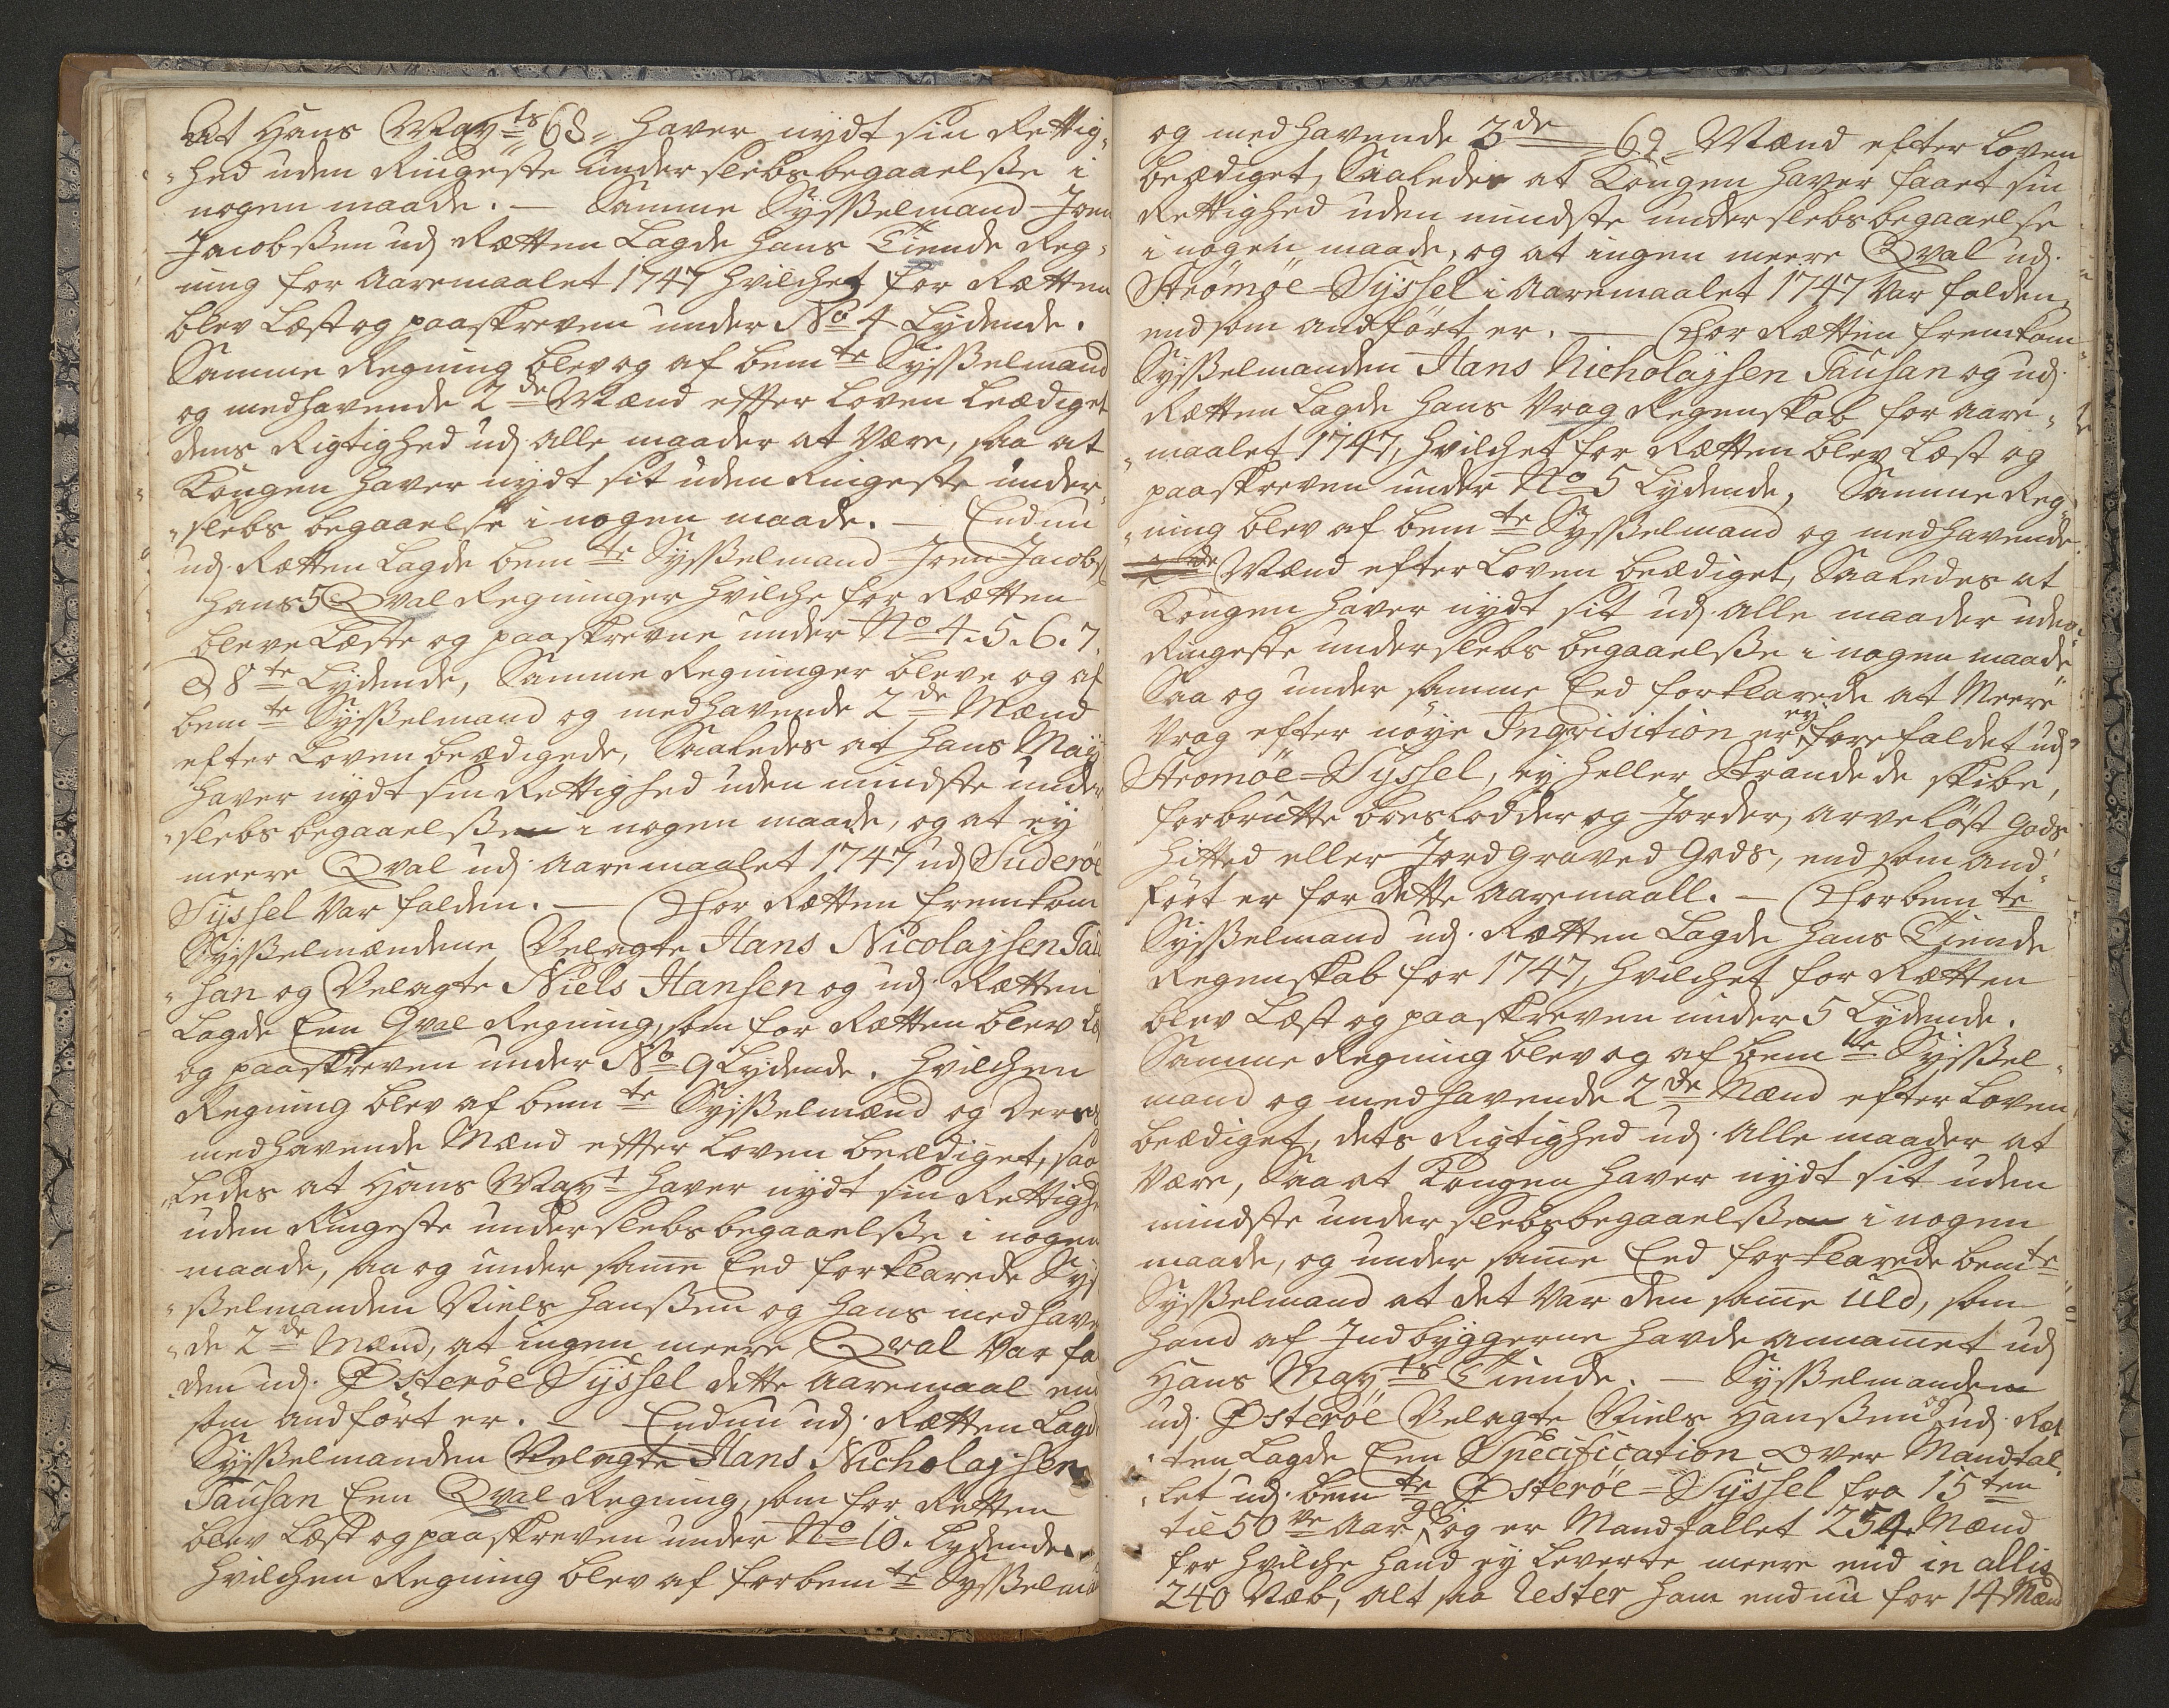 At Hans May ts 68 haver nydt sin Rettig,
hed uden Ringeste underslebs begaaelße i
nogen maade. — Samme Sysßelmand Joen
Jacobßen udj Rætten Lagde hans Tiende Reg,
ning for Aaremaalet 1747 hvilchet for Rætten
blev Læst og paaskreven under No 4 Lydende.
Samme Regning blev og af bem te Sysßelmand
og medhavende 2 de Mænd effter Loven beædiget
dens Rigtighed udj alle maader at være, saa at
Kongen haver nydt sit uden Ringeste under,
slebs begaaelse i nogen maade. — Endnu
udj Rætten Lagde bem te Sysßelmand Joen Jacobs
hans 5 Qval Regninger hvilche for Rætten
bleve Læste og paaskrevne under No 4. 5. 6. 7.
& 8 te Lydende, Samme Regninger bleve og af
bem te Sysßelmand og medhavende 2 de Mænd
efter Loven beædigede, Saaledes at Hans May
haver nydt sin Rettighed uden mindste under
slebs begaaelße i nogen maade, og at ey
meere Qval udj Aaremaalet 1747 udj Suderöe
Syssel var falden. — For Rætten fremkom
Sysßelmændene Velagte Hans Nicolajsen Tau
san og Velagte Niels Hansen og udj Rætten
Lagde Een Qval Regning, som for Rætten blev Læ
og paaskreven under No 9 Lydende. Hvilchen
Regning blev af bem te Sysßelmænd og Deres
medhavende Mænd effter Loven beædiget, saa
ledes at Hans May t haver nydt sin Rettighe
uden Ringeste underslebs begaaelße i nogen
maade, saa og under same Eed forklarede Sys
ßelmanden Niels Hanßen og hans medhave
de 2 de Mænd, at ingen meere Qval var fa
den udj Österöe Syssel dette Aaremaal end
som andfört er. — Endnu udj Rætten Lagd
Sysßelmanden Velagte Hans Nicholajsen
Tausan Een Qval Regning, som for Retten
blev Læst og paaskreven under No 10. Lydende.
Hvilchen Regning blev af forbem te Sysßelmd
og medhavende 3 de 69 Mænd efter Loven
beædiget, Saaledes at Kongen haver faaet sin
Rettighed uden mindste underslebs begaaelse
i nogen maade, og at ingen meere Qval udj
Strömöe-Syssel i Aaremaalet 1747 var falden,
end som andfört er. — For Rætten fremkom
Sysßelmanden Hans Nicholajsen Tausan og udj
Rætten Lagde hans Vrag Regenskab for Aare,
maalet 1747, hvilchet for Rætten blev Læst og
paaskreven under No 5 Lydende, Samme Reg,
ning blev af bem te Sysßelmand og medhavende
Mænd efter Loven beædiget, Saaledes at
Kongen haver nydt sit udj alle maader uden
Ringeste underslebs begaaelße i nogen maade
Saa og under samme Eed forklarede at Meere
Vrag efter nöye Inqvisition er ey forefaldet udj
Stromöe-Syssel, ey heller Strandede skibe,
forbrutte boeslodder og Jorder, arvelöst Gods
hitted eller Jordgraved Gods, end som and,
fört er for dette Aaremaall. — Forbem te
Sysßelmand udj Rætten Lagde hans Tiende
Regenskab for 1747, hvilchet for Rætten
blev Læst og paaskreven under 5 Lydende.
Samme Regning blev og af bem te Sysßel,
mand og medhavende 2 de Mænd efter Loven
beædiget, dets Rigtighed udj alle maader at
være, Saa at Kongen haver nydt sit uden
mindste underslebs begaaelße i nogen
maade, og under same Eed forklarede bem te
Sysßelmand at det var den same Uld, som
hand af Indbyggerne havde annamet udj
Hans May ts Tiende. — Sysßelmanden
udj Österöe Velagte Niels Hanßen og udj Ræt
ten Lagde Een Specification over Mandtal,
let udj bem te Österöe-Syssel fra 15 ten
til 50 ve Aar, og er Mandtallet 254 Mænd
for hvilche hand ey leverte meere end in allis
240 Næb, alt saa Rester ham endnu for 14 Mænd